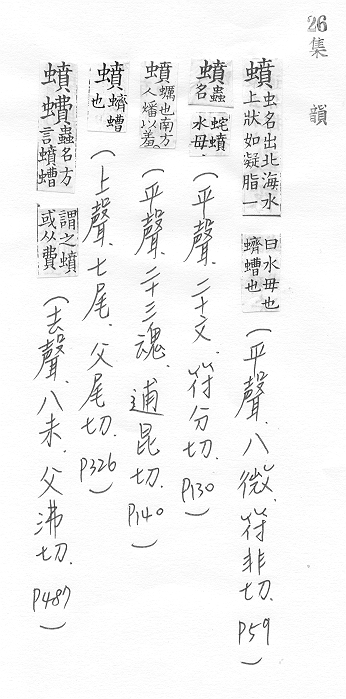 26集韻
蟦 虫名出北海水上狀如凝脂一曰水毋也蠐螬也（平聲、八微、符非切. P59）
蟦 蟲名蛇蟦水毋（平聲、二十文、符分切. P130）
蟦 蠣也南方人燔以羞（平聲、二十三魂、逋昆切. P140）
蟦 蠐螬也（上聲、七尾、父尾切. P326）
蟦𧓖 蟲名方言蟦螬謂之蟦或从費（去聲、八未、父沸切. P487）